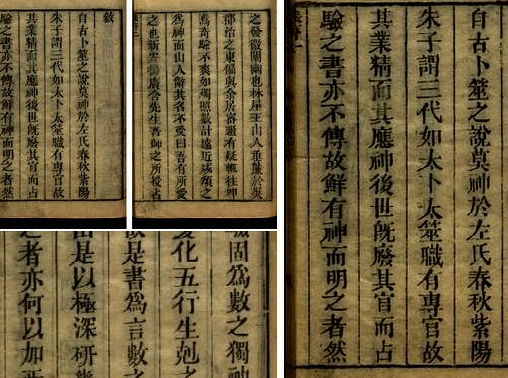 敘
自古卜筮之說莫神於左氏春秋紫陽
朱子謂三代如太卜太筮職有專官故
其業精而其應神後世既廢其官而占
驗之書亦不傳故鮮有神而明之者然
之發微闡幽也林屋王山人重於吳
郡治之東偏與余居有疑輒往
焉奇驗不爽如燭照數計遠近咸頌之
為神而山人辭其名不受曰吾有所受
之也新安先生吾師之所授古
自古卜筮之說莫神於左氏春秋紫陽
朱子謂三代如太卜太筮職有專官故
其業精而其應神後世既廢其官而占
驗之書亦不傳故鮮有神而明之者然
固為數之獨神
化五行生剋
是書為言數
是以極深研
之者亦何以加